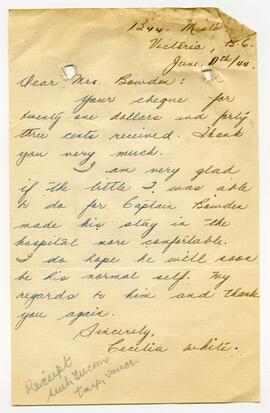 1344 Minto
Victoria, B.C.
June 11th/44.
Dear Mrs. Bowden:
Your cheque for
twenty one dollars and forty
three cents received. Thank
you very much.
I am very glad
if the little I was able
to do for Captain Bowden
made his stay in the
hospital more comfortable.
I do hope he will soon
be his normal self. My
regards to him and thank
you again.
Sincerely,
Cecilia White.
Receipt
Income